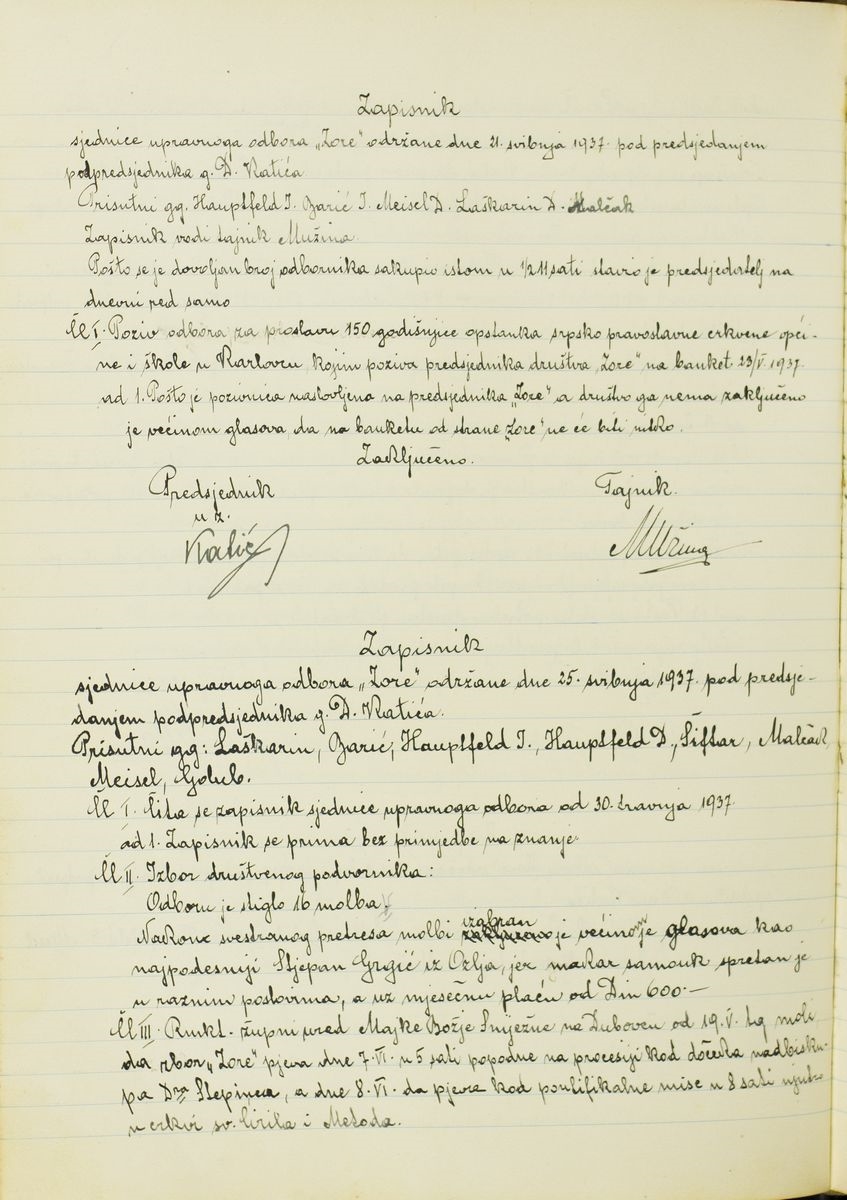 Zapisnik
sjednice upravnoga odbora „Zore" održane dne 21. svibnja 1937. pod predsjedanjem
podpredsjednika g. D. Katića
Prisutni gg. Hauptfeld I. Barić I. Meisel D. Laškarin D. Malčak
Zapisnik vodi tajnik Mužina.
Pošto se je dovoljan broj odbornika sakupio istom u 1/2 11 sati stavio je predsjedatelj na
dnevni red samo
Čl I. Poziv odbora za proslavu 150 godišnjice opstanka srpsko pravoslavne crkvene opći-
ne i škole u Karlovcu kojim poziva predsjednika društva „Zore" na banket 23/V. 1937.
ad 1. Pošto je pozivnica naslovljena na predsjednika „Zore" a društvo ga nema zaključeno
je većinom glasova, da na banketu od strane „Zore" ne će biti nitko.
Zaključeno.
Predsjednik Tajnik.
u z.
Katić MMužina
Zapisnik
sjednice upravnoga odbora „Zore" održane dne 25. svibnja 1937. pod predsje-
danjem podpredsjednika g. D. Katića.
Prisutni gg: Laškarin, Barić, Hauptfeld I., Hauptfeld D., Šiftar, Malčak
Meisel, Golub.
Čl I. Čita se zapisnik sjednice upravnoga odbora od 30. travnja 1937.
ad 1. Zapisnik se prima bez primjedbe na znanje.
Čl II. Izbor društvenog podvornika:
Odboru je stiglo 16 molba.
Nakon svestranog pretresa molbi izabran je većinom glasova kao
najpodesniji Stjepan Grgić iz Ozlja, jer makar samouk spretan je
u raznim poslovima, a uz mjesečnu plaću od Din 600.—
Čl III. Rmkt. župni ured Majke Božje Snježne na Dubovcu od 19. V. t.g. moli,
da zbor „Zore" pjeva dne 7. VI. u 5 sati popodne na procesiji kod dočeka nadbisku-
pa Dra Stepinca, a dne 8. VI. da pjeva kod pontifikalne mise u 8 sati ujutro
u crkvi sv. Ćirila i Metoda.